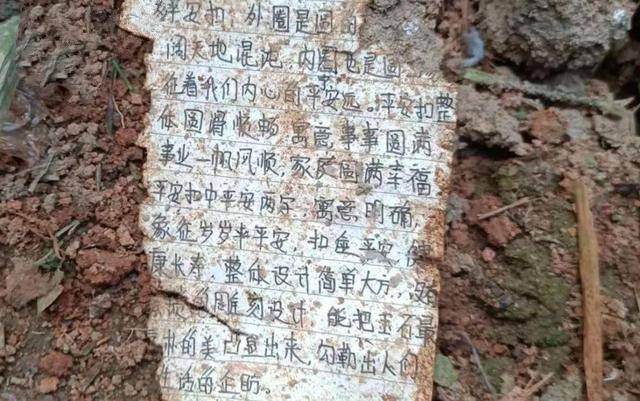 平安扣,外圈是圆
阔天地混沌,内圈也是圆
征着我们内心的平安远。平安扣整
体圆滑顺畅 寓意事事圆满
事业一帆风顺,家庭圆满幸福
平安扣中平安两字,寓意明确,
象征岁岁平平安,扣住平安,健
康长寿 整体设计简单大方,没
雕刻设计 能把玉石最
的美凸显出来,勾勒出人们
生活的正